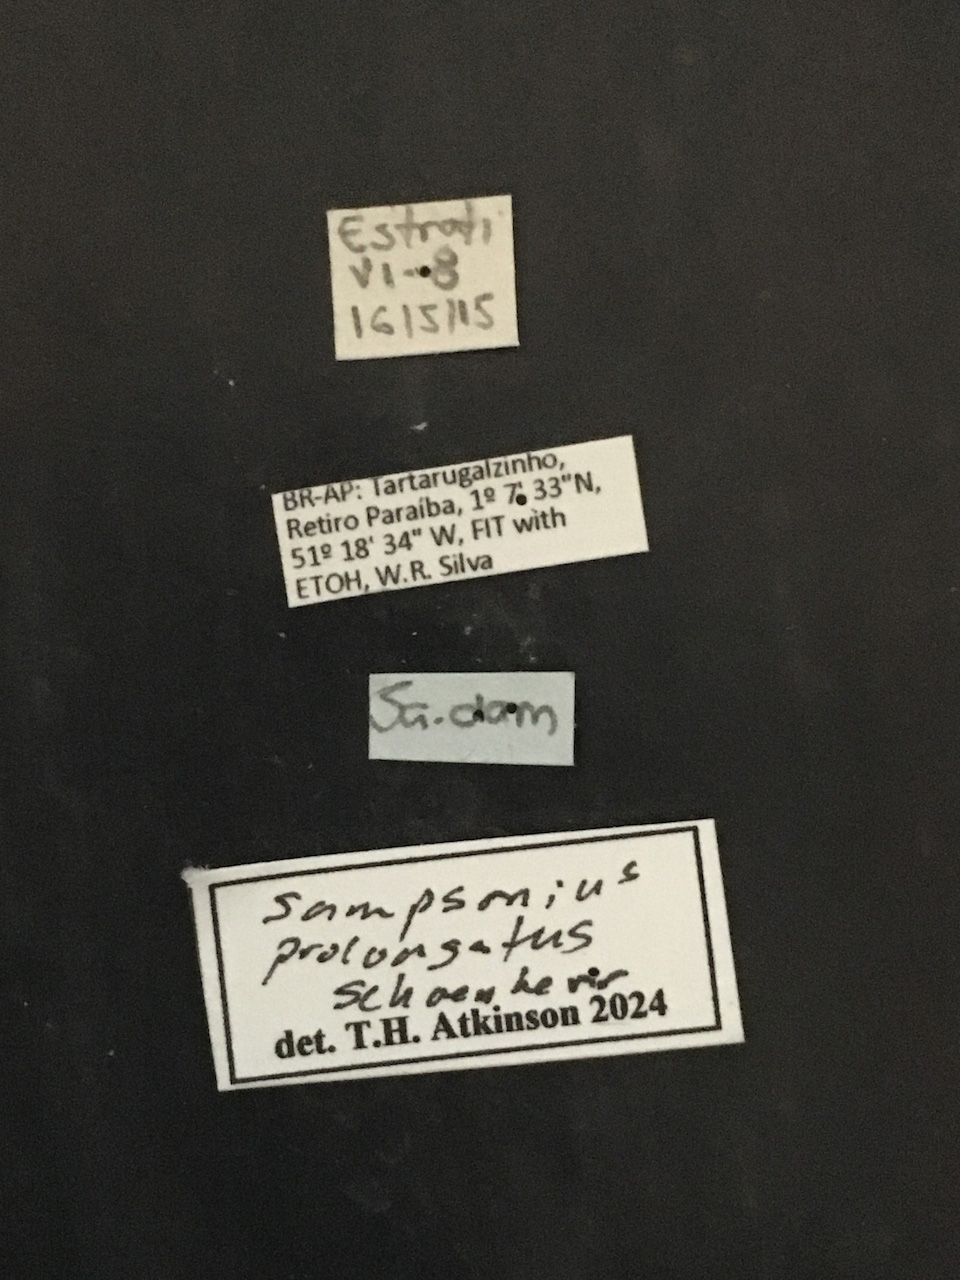 Estrati
VI-8
16/5/15
BR-AP: Tartarugalzinho,
Retiro Paraíba, 1º 7' 33"N,
51º 18' 34" W, FIT with
ETOH, W.R. Silva
Sa.dam
Sampsonius
prolongatus
det. T.H. Atkinson 2024